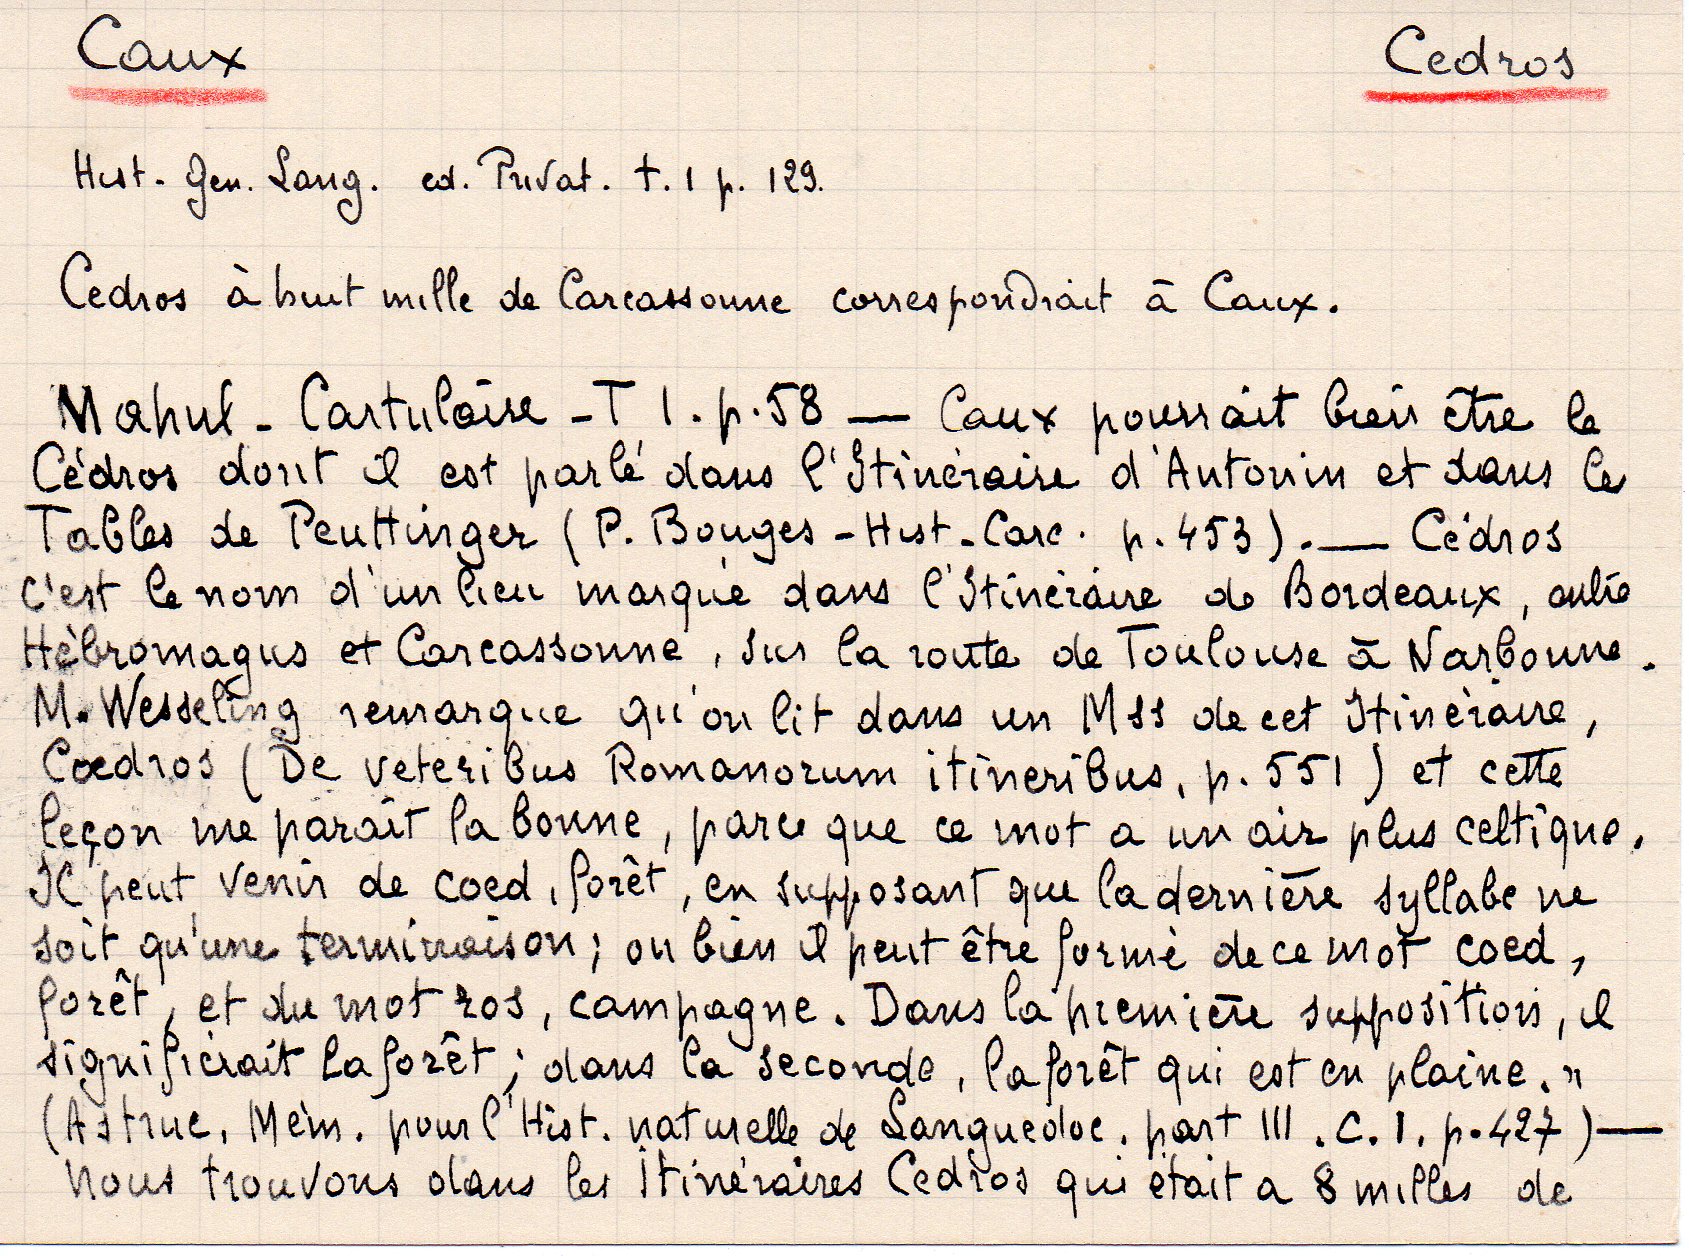 Caux Cedros
Hist. Gen. Lang. ed. Privat. t. 1 p. 129.
Cedros à huit mille de Carcassonne correspondrait à Caux.
Mahul - Cartulaire - T 1. p. 58 — Caux pourrait bien être le
Cédros dont il est parlé dans l'Itinéraire d'Antonin et dans les
Tables de Peuttinger (P. Bouges - Hist. Carc. p. 453). — Cédros
c'est le nom d'un lieu marqué dans l'Itinéraire de Bordeaux, entre
Hèbromagus et Carcassonne, sur la route de Toulouse à Narbonne.
M. Wesseling remarque qu'on lit dans un Mss de cet Itinéraire,
Coedros (De veteribus Romanorum itineribus, p. 551) et cette
leçon me paraît la bonne, parce que ce mot a un air plus celtique.
Il peut venir de coed, forêt, en supposant que la dernière syllabe ne
soit qu'une terminaison; ou bien il peut être formé de ce mot coed,
forêt, et du mot ros, campagne. Dans la première supposition, il
signifierait la forêt; dans la seconde, la forêt qui est en plaine."
(Astruc, Mém. pour l'Hist. naturelle de Languedoc. part III. c. 1. p. 427) —
Nous trouvons dans les Itinéraires Cedros qui était a 8 milles de